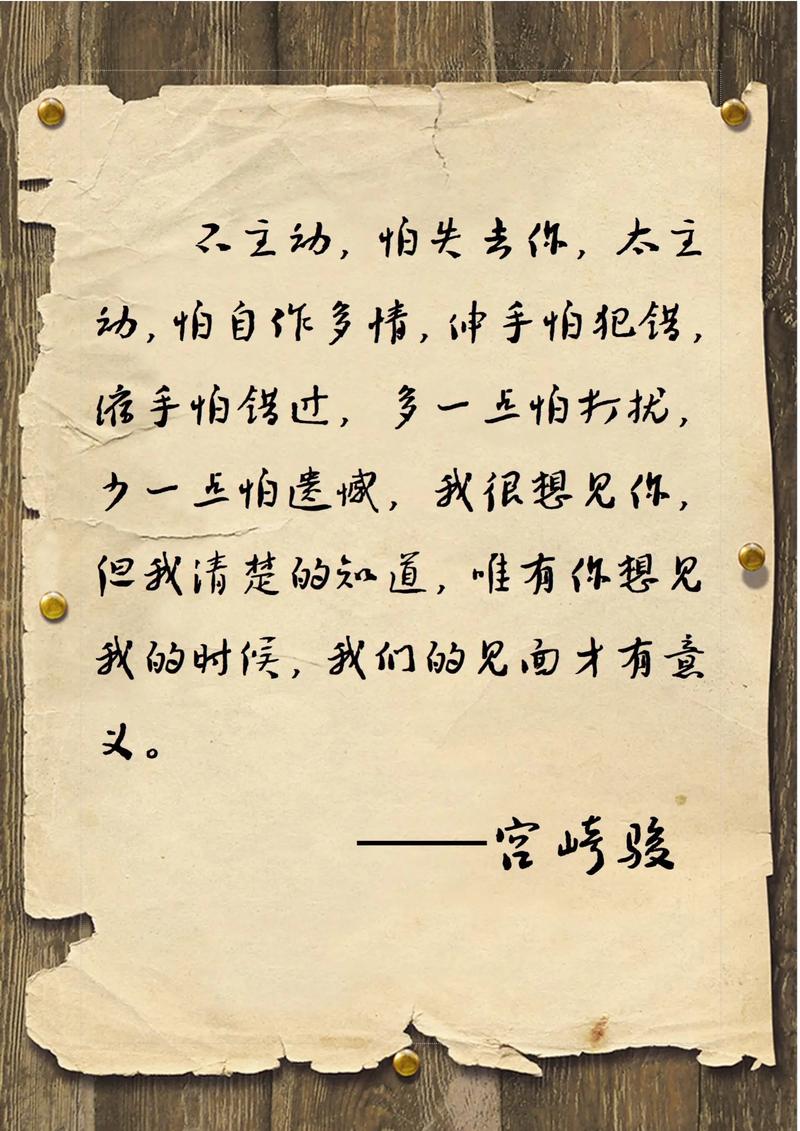 不主动，怕失去你，太主
动，怕自作多情，伸手怕犯错，
缩手怕错过，多一点怕打扰，
少一点怕遗憾，我很想见你，
但我清楚的知道，唯有你想见
我的时候，我们的见面才有意
义。
——宫崎骏